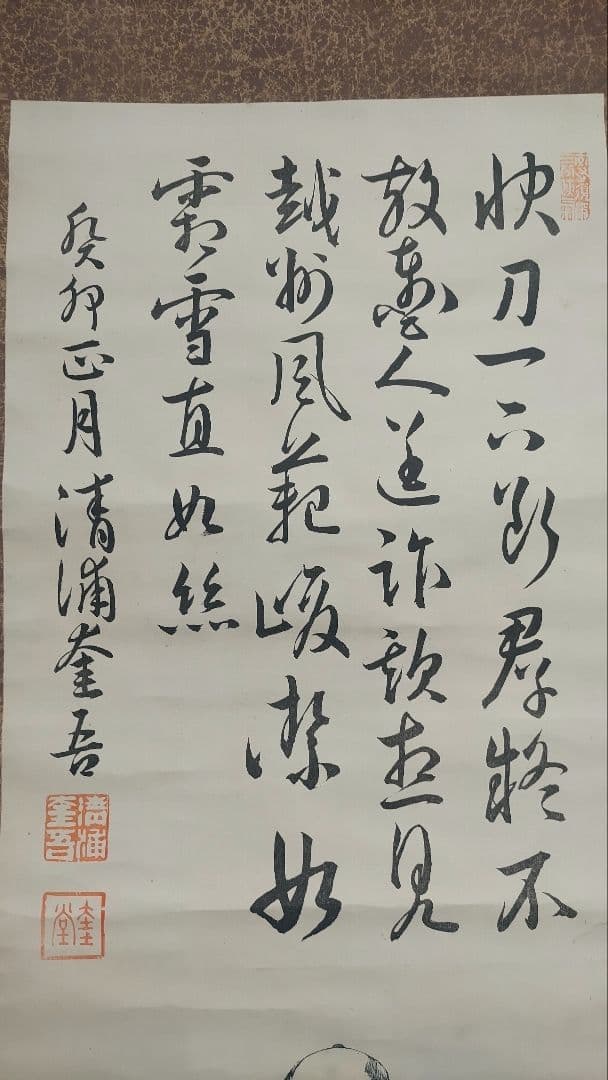 快刀一下断群疑不
放人逞詐欺想見
越州風範峻潔如
霜雪直如絲
癸卯正月 清浦奎吾
清浦奎吾
奎堂